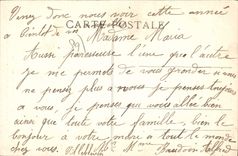 Venez donc nous voir cette année
à bientôt de vos
CARTE POSTALE
Madame Maria
Aussi paresseuse l'une que l'autre
je me permets de vous gronder vous
ne pensez plus à nous je pense toujours
à vous j'espère que vous allez bien
ainsi que toute votre famille, bien le
bonjour à votre mère et à tout le monde
chez vous. Mme Baudoin Alfred